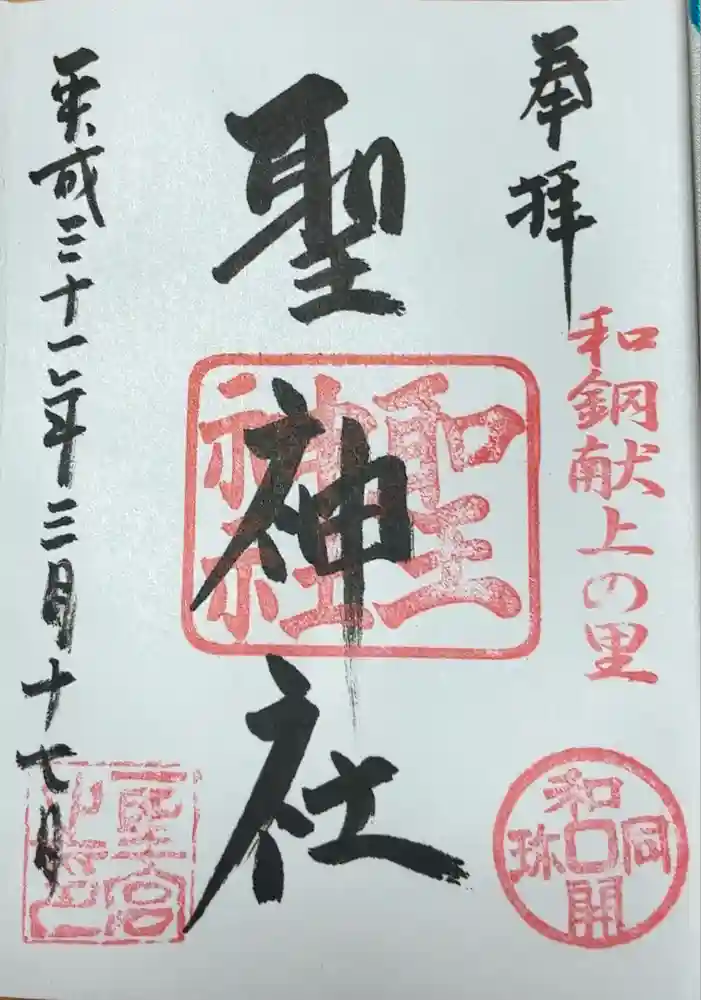 奉拝
和銅献上の里
聖神社
聖神社
平成三十一年三月十七日
和同開珎